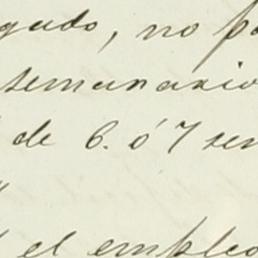 gado, no po
semanario
de 6. ó 7 sem
el empleo